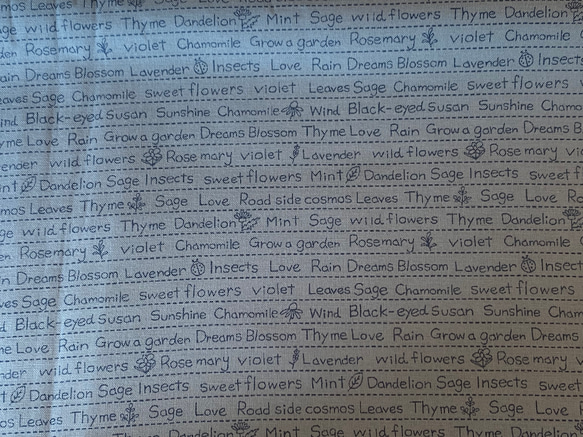 mos Leaves Thyme Sage Love Road side
ge wild flowers Thyme Dandelion Mint Sage wild flowers Thyme Dandelion
den Rosemary violet Chamomile Grow a garden Rosemary violet Chamomile
ain Dreams Blossom Lavender Insects Love Rain Dreams Blossom Lavender Insects
eaves Sage Chamomile sweet flowers violet Leaves Sage Chamomile sweet flowers
ind Black-eyed Susan Sunshine Chamomile Wind Black-eyed Susan Sunshine Chamo
yme Love Rain Grow a garden Dreams Blossom Thyme Love Rain Grow a garden Dreams B
ender wild flowers Rosemary violet Lavender wild flowers Rosemary vio
nt Dandelion Sage Insects sweet flowers Mint Dandelion Sage Insects sweet f
mos Leaves Thyme Sage Love Road side cosmos Leaves Thyme Sage Love Ro
ge wild flowers Thyme Dandelion Mint Sage wild flowers Thyme Dandelion
en Rosemary violet Chamomile Grow a garden Rosemary violet Chamomile
n Dreams Blossom Lavender Insects Love Rain Dreams Blossom Lavender Insect
ves Sage Chamomile sweet flowers violet Leaves Sage Chamomile sweet flowers
d Black-eyed Susan Sunshine Chamomile Wind Black-eyed Susan Sunshine Cham
ne Love Rain Grow a garden Dreams Blossom Thyme Love Rain Grow a garden Dreams
nder wild flowers Rosemary violet Lavender wild flowers Rosemary v
t Dandelion Sage Insects sweet flowers Mint Dandelion Sage Insects sweet
os Leaves Thyme Sage Love Road side cosmos Leaves Thyme Sage Love
wild flowers Thyme Dandelion Mint Sage wild flowers Thyme Dandelion